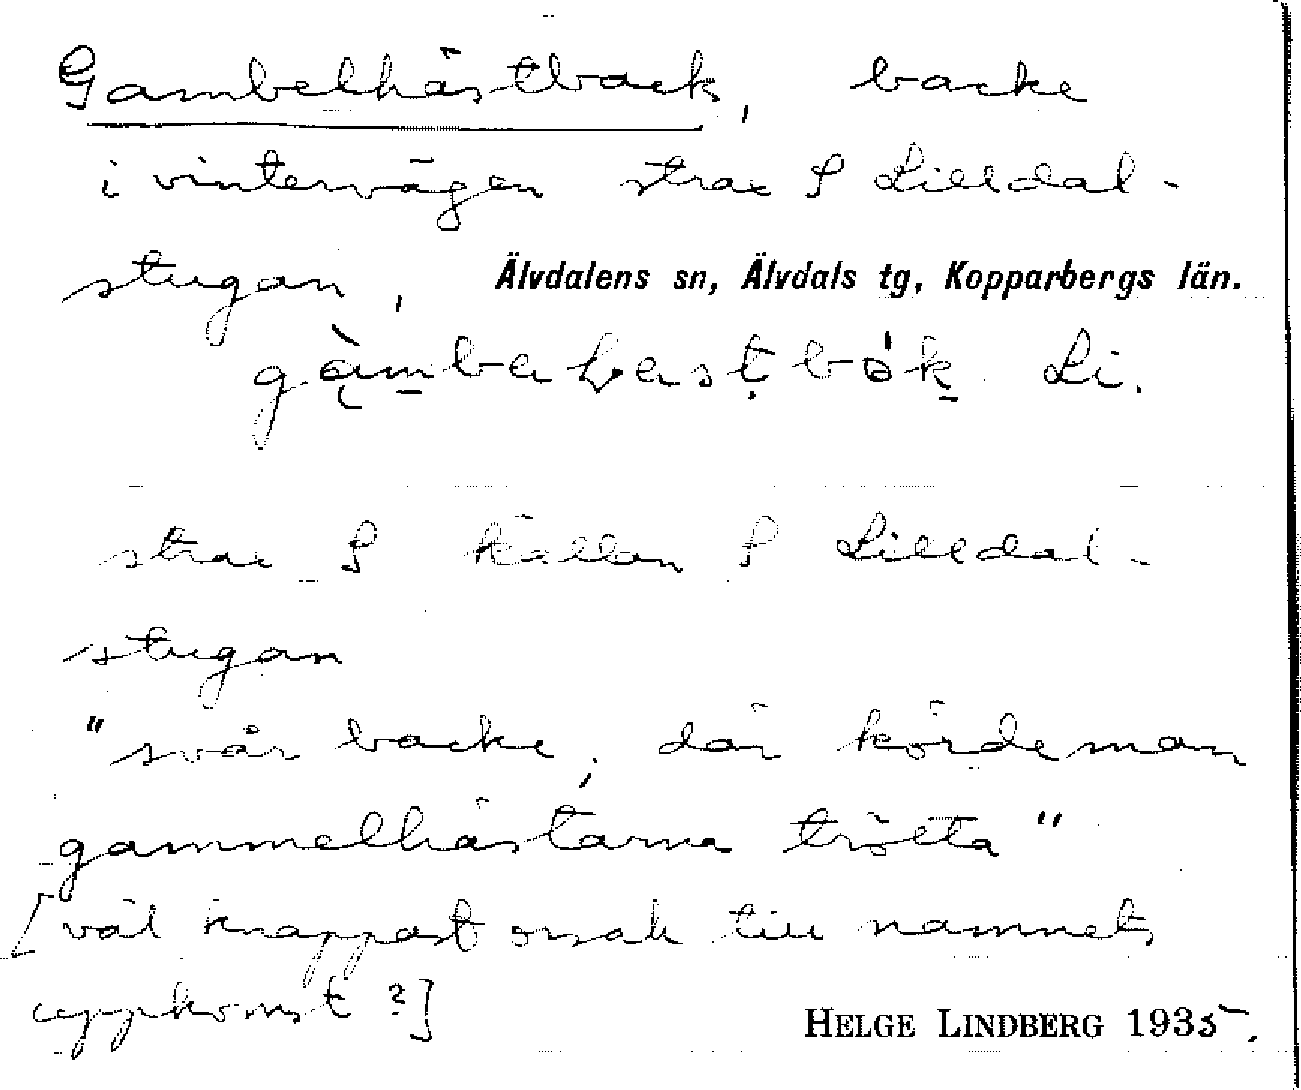 Gambelhästback, backe
i vintervägen strax S Lilldal-
stugan, Älvdalens sn, Älvdals tg, Kopparbergs län.
Li.
strax S källan S Lilldal-
stugan
"svår backe, där körde man
gammelhästarna trötta"
[väl knappast orsak till namnets
uppkomst?]
HELGE LINDBERG 1935.